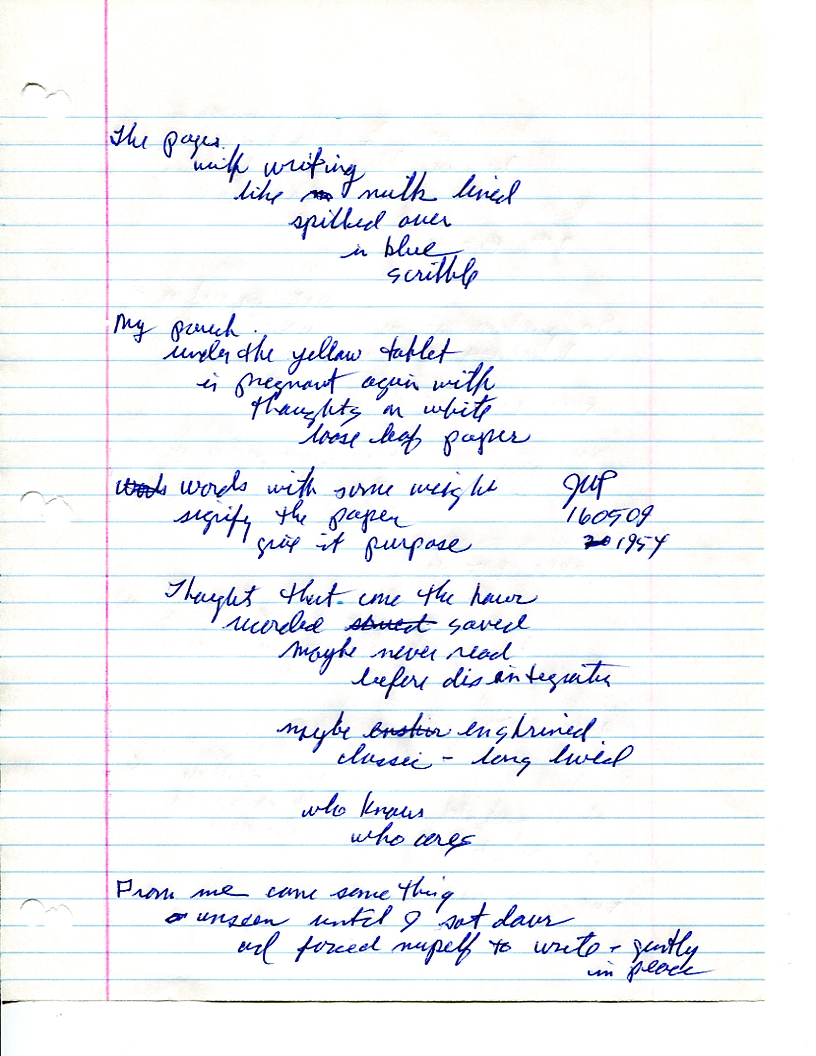 The pages
with writing
like milk lined
spilled over
in blue
scribble
My pouch
under the yellow tablet
is pregnant again with
thoughts on white
loose leaf paper
words with some weight
signify the paper
give it purpose
JWP
160509
1954
Thoughts that come the hour
recorded saved
maybe never read
before disintegrating
maybe enshrined
classic - long lived
who knows
who cares
From me came something
unseen until I sat down
and forced myself to write - gently
in peace